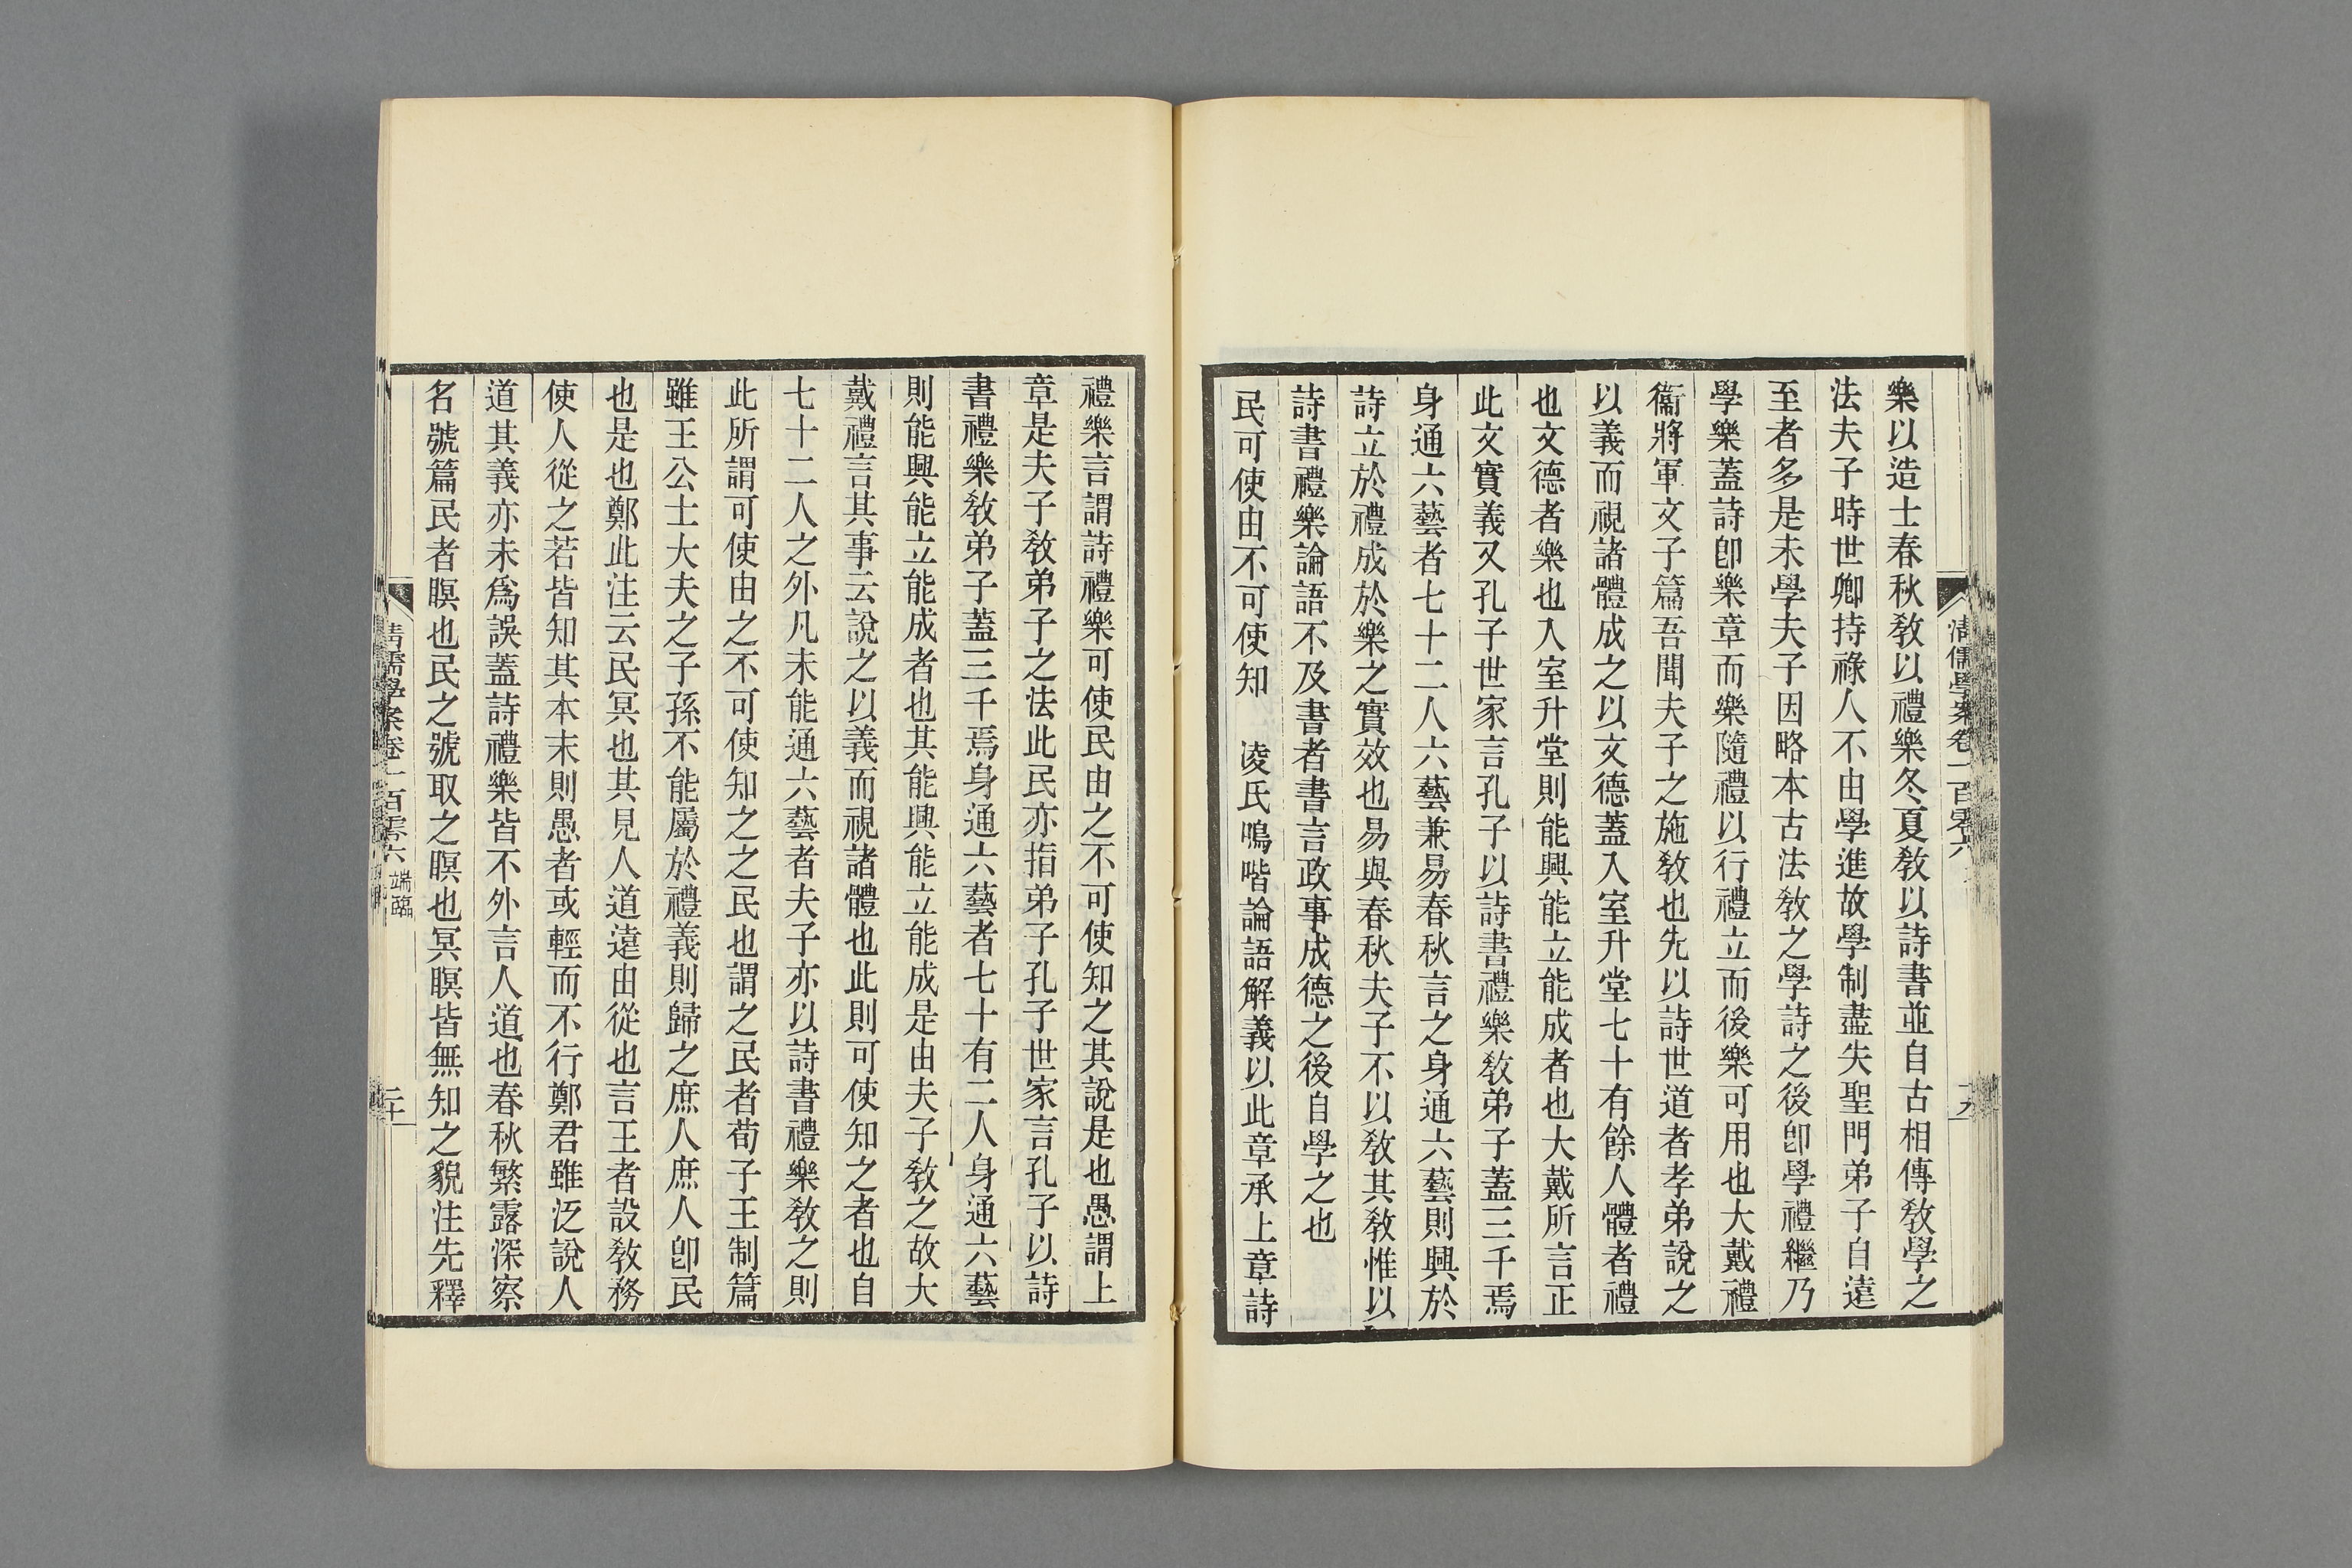 清儒學案卷一百零六
十九
樂以造士春秋敎以禮樂冬夏敎以詩書並自古相傳敎學之
法夫子時世卿持祿人不由學進故學制盡失聖門弟子自遠
至者多是未學夫子因略本古法敎之學詩之後卽學禮繼乃
學樂蓋詩卽樂章而樂隨禮以行禮立而後樂可用也大戴禮
衞將軍文子篇吾聞夫子之施敎也先以詩世道者孝弟說之
以義而視諸體成之以文德蓋入室升堂七十有餘人體者禮
也文德者樂也入室升堂則能興能立能成者也大戴所言正
此文實義又孔子世家言孔子以詩書禮樂敎弟子蓋三千焉
身通六藝者七十二人六藝兼易春秋言之身通六藝則興於
詩立於禮成於樂之實效也易與春秋夫子不以敎其敎惟以
詩書禮樂論語不及書者書言政事成德之後自學之也
民可使由不可使知　淩氏鳴喈論語解義以此章承上章詩
禮樂言謂詩禮樂可使民由之不可使知之其說是也愚謂上
章是夫子敎弟子之法此民亦指弟子孔子世家言孔子以詩
書禮樂敎弟子蓋三千焉身通六藝者七十有二人身通六藝
則能興能立能成者也其能興能立能成是由夫子敎之故大
戴禮言其事云說之以義而視諸體也此則可使知之者也自
七十二人之外凡未能通六藝者夫子亦以詩書禮樂敎之則
此所謂可使由之不可使知之之民也謂之民者荀子王制篇
雖王公士大夫之子孫不能屬於禮義則歸之庶人庶人卽民
也是也鄭此注云民冥也其見人道遠由從也言王者設敎務
使人從之若皆知其本末則愚者或輕而不行鄭君雖泛說人
道其義亦未爲誤蓋詩禮樂皆不外言人道也春秋繁露深察
名號篇民者瞑也民之號取之瞑也冥瞑皆無知之貌注先釋
清儒學案卷一百零六
端臨
二十